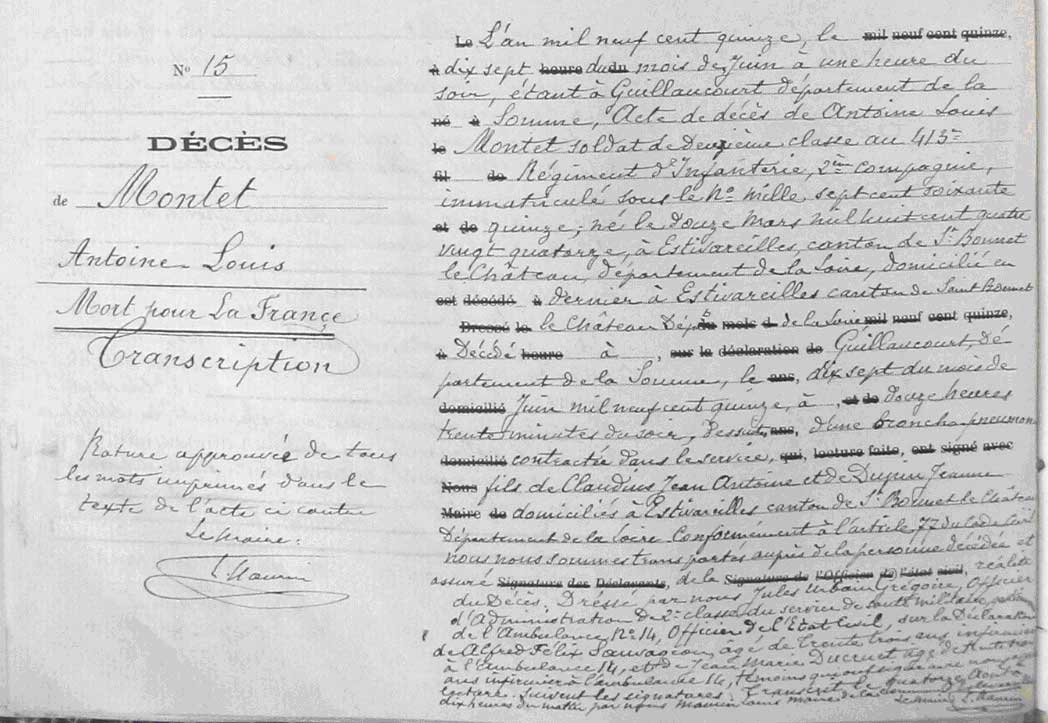 Nº 15
DÉCÈS
de Montet
Antoine Louis
Mort pour La France
Transcription
Rature approuvée de tous
les mots imprimés dans le
texte de l'acte ci contre
Le Maire:
Le L'an mil neuf cent quinze, le mil neuf cent quinze,
à dix sept heure du du mois de Juin à une heure du
soir, étant à Guillaucourt département de la
né à Somme, Acte de décès de Antoine Louis
le Montet soldat de Deuxième classe au 413me
fil de Régiment d'Infanterie, 2me compagnie,
immatriculé sous le No mille, sept cent soixante
et de quinze; né le douze Mars mil huit cent quatre
vingt quatorze, à Estivareilles, canton de St Bonnet
le Château, département de la Loire, domicilié en
est décédé à dernier à Estivareilles canton de Saint Bonnet
Dressé le le Château Dépt du mois d de la Loire mil neuf cent quinze,
à Décédé heure à , sur la déclaration de Guillaucourt, Dé
partement de la Somme, le ans, dix sept du mois de
domicilié Juin mil neuf cent quinze, à , et de Douze heures
trente minutes du soir, ans, d'une broncho-pneumonie
domicilié contractée dans le service, qui, lecture faite, ont signé avec
Nous fils de Claudius Jean Antoine et de Jeanne
Maire de domiciliés à Estivareilles canton de St Bonnet le Château
Département de la Loire Conformément à l'article 77 du Code Civil
nous nous sommes transportés auprès de la personne décédée et
assuré Signature des Déclarants, de la Signature de l'Officier de l'état civil, réalité
du Décès. Dressé par nous Jules Urbain Grégoire, Officier
d'Administration de 2me classe du service de santé militaire,
de l'Ambulance No 14, Officier de l'Etat Civil, sur la Déclaration
de Alfred Félix Sauvageon, âgé de trente trois ans infirmier
à l'ambulance 14, et de Jean Marie Ducruet âgé de
ans infirmier à l'ambulance 14, témoins qui ont signé avec nous après
lecture. Suivent les signatures. Transcrit le quatorze Août à
dix heures du matin par nous Maurin Louis maire de la commune